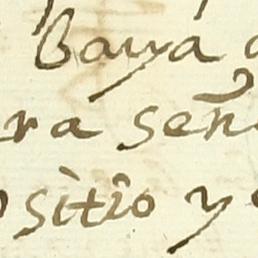 baya a
ra señ
sitio y